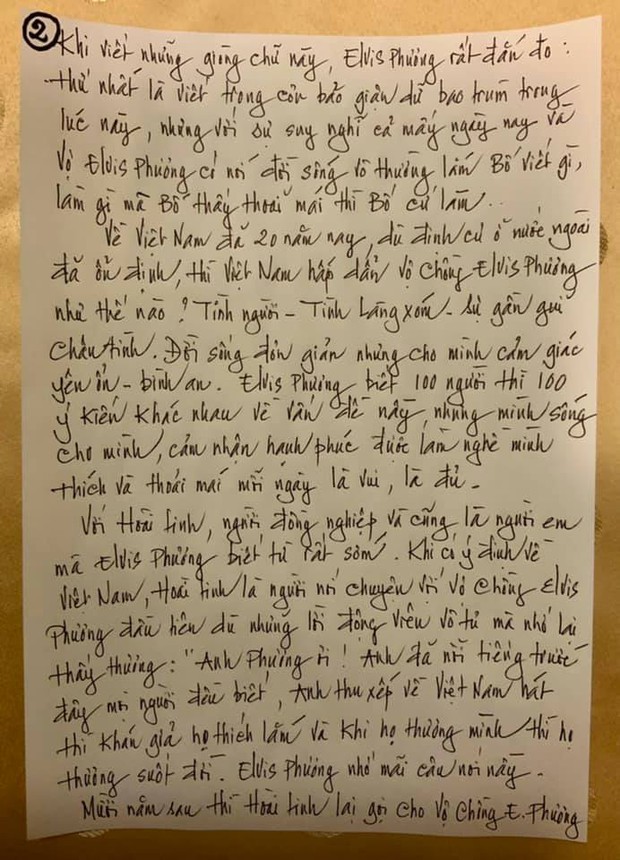 ②
Khi viết những giòng chữ này, Elvis Phương rất đắn đo :
thứ nhất là viết trong cơn bảo giận dữ bao trùm trong
lúc này, nhưng với sự suy nghĩ cả mấy ngày nay và
Vợ Elvis Phương có nói đời sống vô thường lắm Bố viết gì,
làm gì mà Bố thấy thoải mái thì Bố cứ làm..
Về Việt Nam đã 20 năm nay, dù định cư ở nước ngoài
đã ổn định, thì Việt Nam hấp dẫn vợ chồng Elvis Phương
như thế nào ? Tình người - Tình Làng xóm - Sự gần gũi
chân tình. Đời sống đơn giản nhưng cho mình cảm giác
yên ổn - bình an. Elvis Phương biết 100 người thì 100
ý kiến khác nhau về vấn đề này, nhưng mình sống
cho mình, cảm nhận hạnh phúc được làm nghề mình
thích và thoải mái mỗi ngày là vui, là đủ -
Với Hoài Linh, người đồng nghiệp và cũng là người em
mà Elvis Phương biết từ rất sớm. Khi có ý định về
Việt Nam, Hoài Linh là người nói chuyện với Vợ Chồng Elvis
Phương đầu tiên dù những lời động viên vô tư mà nhớ lại
thấy thương : "Anh Phương ơi ! Anh đã nổi tiếng trước
đây mọi người đều biết, Anh thu xếp về Việt Nam hát
thì khán giả họ thích lắm và khi họ thương mình thì họ
thương suốt đời. Elvis Phương nhớ mãi câu nói này -
Mười năm sau thì Hoài Linh lại gọi cho Vợ Chồng E. Phương